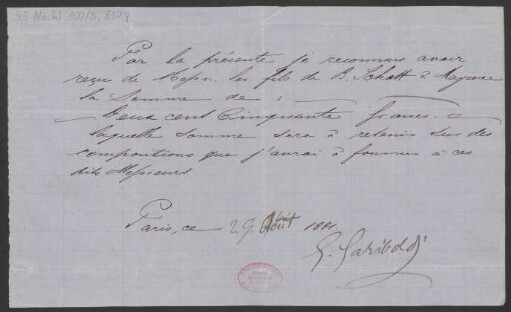 55 Nachl 100/B, 
Par la présente je reconnais avoir
reçu de Messrs. les fils de B. Schott à Mayence
la Somme de :
Deux cent Cinquante francs.
laquelle somme sera à retenir sur des
compositions que j'aurai à fournir à ces
dits Messieurs
Paris, ce 29 Août 1881
G. Gariboldi